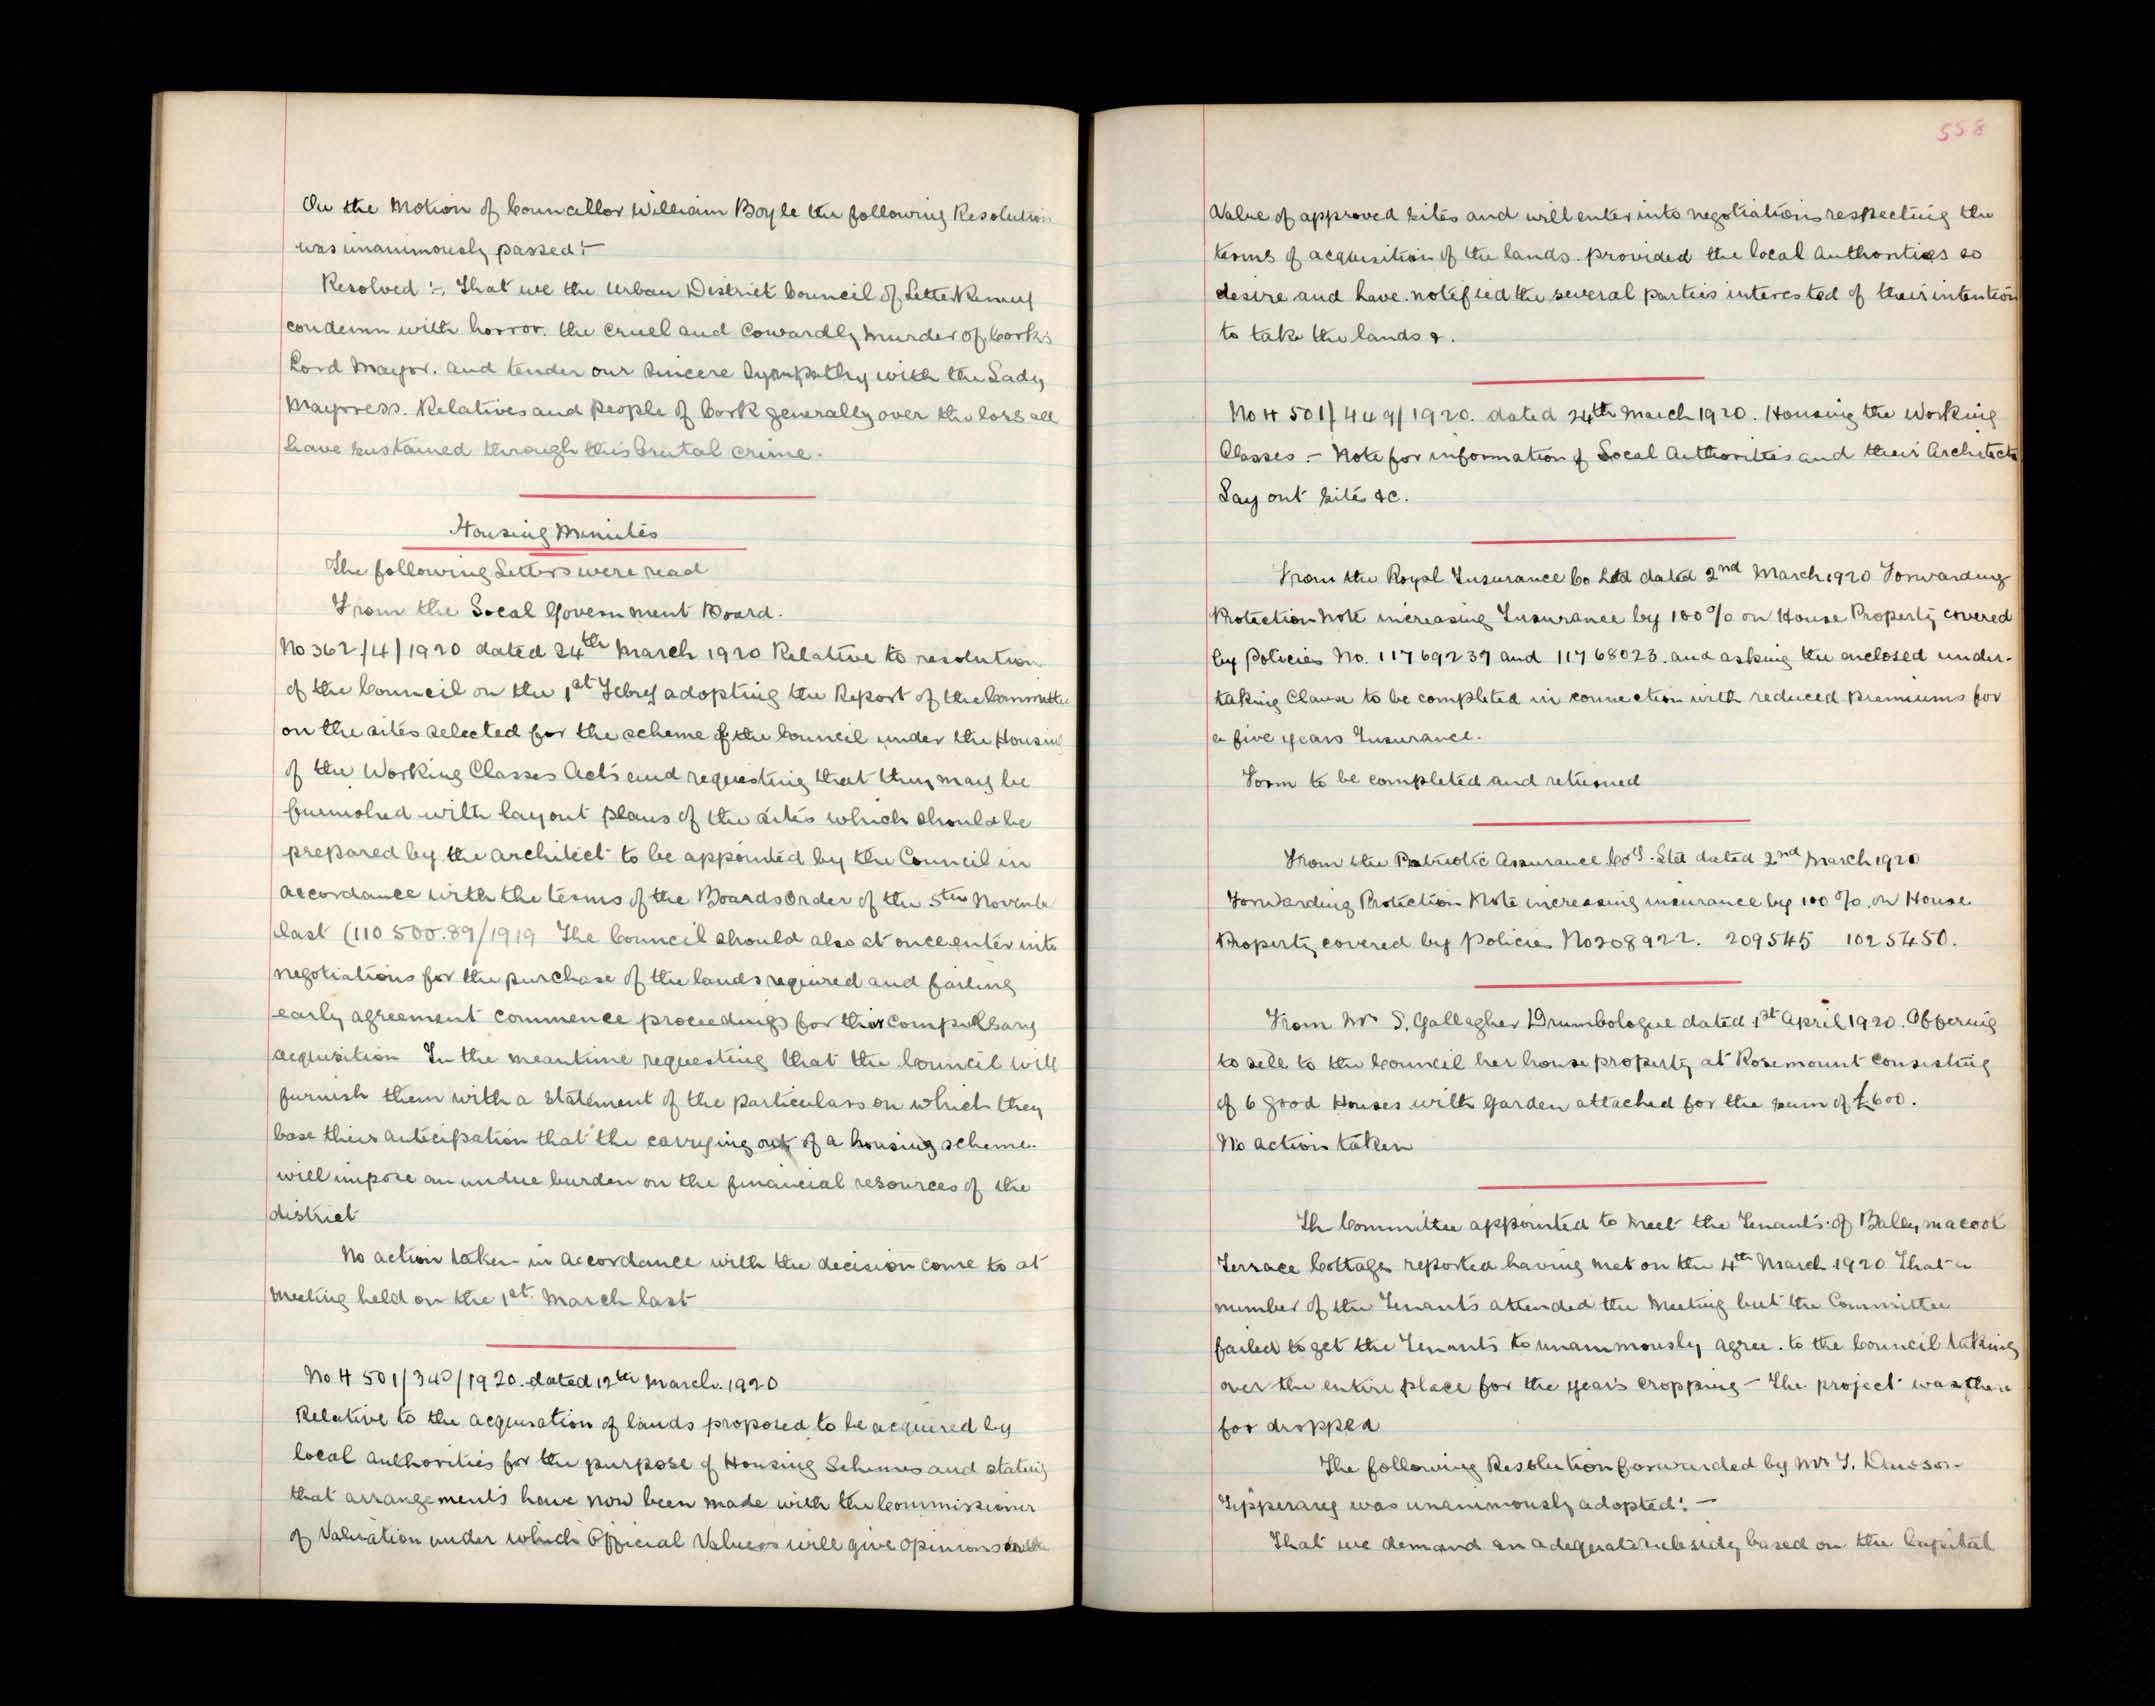 On the Motion of Councillor William Boyle the following Resolution
was unanimously passed :-
Resolved :- That we the Urban District Council of Letterkenny
condemn with horror. the cruel and cowardly murder of Cork's
Lord Mayor. and tender our sincere sympathy with the Lady
Mayoress. Relatives and people of Cork generally over the loss all
have sustained through this brutal crime.
Housing Minutes
The following Letters were read
From the Local Government Board.
No 362/4/1920 dated 24th March 1920 Relative to resolution
of the Council on the 1st Febry adopting the Report of the Committee
on the sites selected for the scheme of the Council under the Housing
of the Working Classes Acts and requesting that they may be
furnished with layout plans of the sites which should be
prepared by the architect to be appointed by the Council in
accordance with the terms of the Boards Order of the 5th November
last (110 500.89/1919 The Council should also at once enter into
negotiations for the purchase of the lands required and failing
early agreement commence proceedings for their compulsary
acquisition In the meantime requesting that the Council will
furnish them with a statement of the particulars on which they
base their anticipation that the carrying out of a housing scheme.
will impose an undue burden on the financial resources of the
district
No action taken in accordance with the decision come to at
meeting held on the 1st. March last
No H 501/340/1920. dated 12th March. 1920
Relative to the acquisation of lands proposed to be acquired by
local authorities for the purpose of Housing Schemes and stating
that arrangements have now been made with the Commissioner
of Valuation under which Official Valuers will give opinions
558
Value of approved sites and will enter into negotiations respecting the
terms of acquisition of the lands. provided the local authorities so
desire and have notified the several parties interested of their intention
to take the lands &.
No H 501/449/1920. dated 24th March 1920. Housing the Working
Classes :- Note for information of Local Authorities and their Architects
Lay out sites &c.
From the Royal Insurance Co Ltd dated 2nd March 1920 Forwarding
Protection Note increasing Insurance by 100% on House Property covered
by Policies No. 11769239 and 11768023. and asking the enclosed under-
taking Clause to be completed in connection with reduced premiums for
a five years Insurance.
Form to be completed and returned
From the Patriotic Assurance Coy. Ltd dated 2nd March 1920
Forwarding Protection Note increasing insurance by 100%. on House
Property covered by Policies No 208922. 209545 1025450.
From Mrs S. Gallagher Drumbologue dated 1st April 1920. Offering
to sell to the Council her house property at Rosemount consisting
of 6 good Houses with garden attached for the sum of £600.
No action taken
Th Committee appointed to meet the Tenants of Ballymacool
Terrace Cottages reported having met on the 4th March 1920 That a
number of the Tenants attended the Meeting but the Committee
failed to get the Tenants to unanimously agree. to the Council taking
over the entire place for the year's cropping - The project was there
for dropped
The following Resolution forwarded by Mr T. Dawson
Tipperary was unanimously adopted :-
That we demand an adequate subsidy based on the Capital